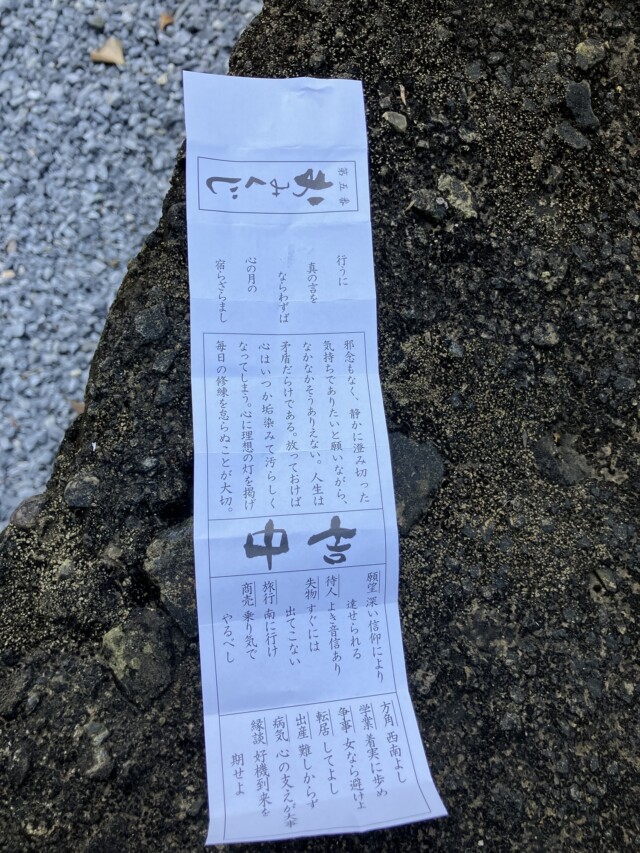 第五番
おみくじ
行うに
真の言を
ならわずば
心の月の
宿らざらまし
邪念もなく、静かに澄み切った
気持ちでありたいと願いながら、
なかなかそうありえない。人生は
矛盾だらけである。放っておけば
心はいつか垢染みて汚らしく
なってしまう。心に理想の灯を掲げ
毎日の修練を怠らぬことが大切。
吉中
願望 深い信仰により
達せられる
待人 よき音信あり
失物 すぐには
出てこない
旅行 南に行け
商売 乗り気で
やるべし
方角 西南よし
学業 着実に歩め
争事 女なら避けよ
転居 してよし
出産 難しからず
病気 心の支えが
縁談 好機到来を
期せよ